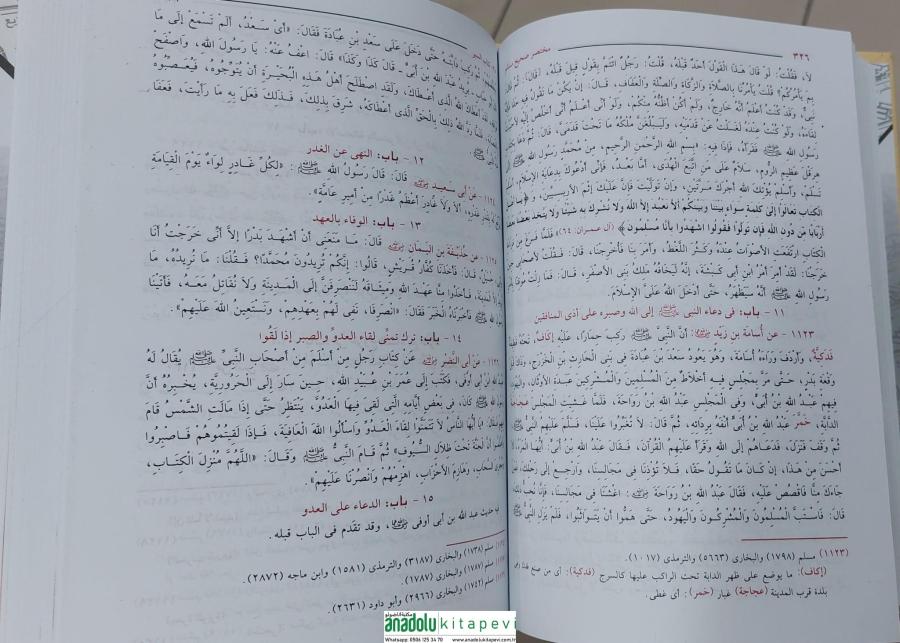 ٣٢٦
مختصر صحيح
لَا، فَقُلْتُ: لَوْ قَالَ هَذَا الْقَوْلَ أَحَدٌ قَبْلَهُ، قُلْتُ: رَجُلٌ ائْتَمَّ بِقَوْلٍ قِيلَ قَبْلَهُ،
بِمَ يَأْمُرُكُمْ؟ قُلْتُ يَأْمُرُنَا بِالصَّلَاةِ وَالزَّكَاةِ وَالصِّلَةِ وَالْعَفَافِ، قَالَ: إِنْ يَكُنْ مَا تَقُولُ فِيهِ
نَبِيٌّ، وَقَدْ كُنْتُ أَعْلَمُ أَنَّهُ خَارِجٌ، وَلَمْ أَكُنْ أَظُنُّهُ مِنْكُمْ، وَلَوْ أَنِّي أَعْلَمُ أَنِّي أَخْلُصُ إِلَيْهِ
لِقَاءَهُ، وَلَوْ كُنْتُ عِنْدَهُ لَغَسَلْتُ عَنْ قَدَمَيْهِ، وَلَيَبْلُغَنَّ مُلْكُهُ مَا تَحْتَ قَدَمَيَّ، قَالَ: ثُمَّ دَعَا
رَسُولِ الله ﷺ فَقَرَأَهُ، فَإِذَا فِيهِ: «بِسم الله الرحمن الرحيم، مِنْ مُحَمَّدٍ رَسُولِ اللهِ
هِرَقْلَ عَظِيمِ الرُّومِ، سَلَامٌ عَلَى مَنِ اتَّبَعَ الْهُدَى، أَمَّا بَعْدُ، فَإِنِّي أَدْعُوكَ بِدِعَايَةِ الإِسْلَامِ،
تَسْلَمْ، وَأَسْلِمْ يُؤْتِكَ اللهُ أَجْرَكَ مَرَّتَيْنِ، وَإِنْ تَوَلَّيْتَ فَإِنَّ عَلَيْكَ إِثْمَ الأَرِيسِيِّينَ، وَ
الكتاب تعالوا إلى كلمة سواء بيننا وبينكم ألا نعبد إلا الله ولا نشرك به شيئا ولا يتخذ بعضنا بعضا
أربابا مّن دون الله فإن تولوا فقولوا اشهدوا بأنا مسلمون﴾ (آل عمران: ٦٤)» فَلَمَّا فَرَغَ مِنْ قِرَاءَةِ
الْكِتَابِ ارْتَفَعَتِ الأَصْوَاتُ عِنْدَهُ وَكَثُرَ اللَّغْطُ، وَأَمَرَ بِنَا فَأُخْرِجْنَا، قَالَ: فَقُلْتُ لأَصْحَابِي حِينَ
خَرَجْنَا: لَقَدْ أَمِرَ أَمْرُ ابْنِ أَبِي كَبْشَةَ، إِنَّهُ لَيَخَافُهُ مَلِكُ بَنِي الأَصْفَرِ، قَالَ: فَمَا زِلْتُ مُوقِنًا
رَسُولِ الله ﷺ أَنَّهُ سَيَظْهَرُ، حَتَّى أَدْخَلَ اللهُ عَلَيَّ الإِسْلَامَ.
١١ - باب: فى دعاء النبي ﷺ إلى الله وصبره على أذى المنافقين
١١٢٣ - عن أُسَامَةَ بْنِ زَيْدٍ: أَنَّ النَّبِيَّ ﷺ رَكِبَ حِمَارًا، عَلَيْهِ إِكَافٌ، تَحْتَهُ قَطِيفَةٌ
فَدَكِيَّةٌ، وَأَرْدَفَ وَرَاءَهُ أُسَامَةَ، وَهُوَ يَعُودُ سَعْدَ بْنَ عُبَادَةَ فِي بَنِي الْحَارِثِ بْنِ الْخَزْرَجِ، وَذَاكَ قَبْلَ
وَقْعَةِ بَدْرٍ، حَتَّى مَرَّ بِمَجْلِسٍ فِيهِ أَخْلَاطٌ مِنَ الْمُسْلِمِينَ وَالْمُشْرِكِينَ عَبَدَةِ الأَوْثَانِ، وَالْيَهُودِ
فِيهِمْ عَبْدُ الله بْنُ أُبَيٍّ، وَفِي الْمَجْلِسِ عَبْدُ الله بْنُ رَوَاحَةَ، فَلَمَّا غَشِيَتِ الْمَجْلِسَ عَجَاجَةُ
الدَّابَّةِ، خَمَّرَ عَبْدُ الله بْنُ أُبَيٍّ أَنْفَهُ بِرِدَائِهِ، ثُمَّ قَالَ: لَا تُغَبِّرُوا عَلَيْنَا، فَسَلَّمَ عَلَيْهِمُ النَّبِيُّ ﷺ
ثُمَّ وَقَفَ فَنَزَلَ، فَدَعَاهُمْ إِلَى الله وَقَرَأَ عَلَيْهِمُ الْقُرْآنَ، فَقَالَ عَبْدُ الله بْنُ أُبَيٍّ: أَيُّهَا الْمَرْءُ لَا
أَحْسَنَ مِنْ هَذَا، إِنْ كَانَ مَا تَقُولُ حَقًّا، فَلَا تُؤْذِنَا فِي مَجَالِسِنَا، وَارْجِعْ إِلَى رَحْلِكَ، فَمَنْ
جَاءَكَ مِنَّا فَاقْصُصْ عَلَيْهِ، فَقَالَ عَبْدُ الله بْنُ رَوَاحَةَ: اغْشَنَا فِي مَجَالِسِنَا، فَإِنَّا نُحِبُّ ذَلِكَ
قَالَ: فَاسْتَبَّ الْمُسْلِمُونَ وَالْمُشْرِكُونَ وَالْيَهُودُ، حَتَّى هَمُّوا أَنْ يَتَوَاثَبُوا، فَلَمْ يَزَلِ النَّبِيُّ ﷺ
(١١٢٣) مسلم (١٧٩٨) والبخارى (٥٦٦٣) والترمذى (١٠١٧).
(إكاف): ما يوضع على ظهر الدابة تحت الراكب عليها كالسرج (فدكية): أى من صنع فدك وهى
بلدة قرب المدينة (عجاجة) غبار (خمر): أى غطى.
حَتَّى دَخَلَ عَلَى سَعْدِ بْنِ عُبَادَةَ فَقَالَ: «أَيْ سَعْدُ، أَلَمْ تَسْمَعْ إِلَى مَا
عَبْدَ الله بْنَ أُبَيٍّ - قَالَ كَذَا وَكَذَا» قَالَ: اعْفُ عَنْهُ: يَا رَسُولَ الله، وَاصْفَحْ
اللهُ الَّذِي أَعْطَاكَ، وَلَقَدِ اصْطَلَحَ أَهْلُ هَذِهِ الْبُحَيْرَةِ أَنْ يُتَوِّجُوهُ، فَيُعَصِّبُوهُ
فَلَمَّا رَدَّ اللهُ ذَلِكَ بِالْحَقِّ الَّذِي أَعْطَاكَهُ، شَرِقَ بِذَلِكَ، فَذَلِكَ فَعَلَ بِهِ مَا رَأَيْتَ، فَعَفَا
١٢ - باب: النهى عن الغدر
عَنْ أَبِي سَعِيدٍ قَالَ: قَالَ رَسُولُ الله ﷺ: «لِكُلِّ غَادِرٍ لِوَاءٌ يَوْمَ الْقِيَامَةِ
أَلَا وَلَا غَادِرَ أَعْظَمُ غَدْرًا مِنْ أَمِيرِ عَامَّةٍ».
١٣ - باب: الوفاء بالعهد
عن حُذَيْفَةَ بْنِ الْيَمَانِ قَالَ: مَا مَنَعَنِي أَنْ أَشْهَدَ بَدْرًا إِلَّا أَنِّي خَرَجْتُ أَنَا
قَالَ: فَأَخَذَنَا كُفَّارُ قُرَيْشٍ، قَالُوا: إِنَّكُمْ تُرِيدُونَ مُحَمَّدًا؟ فَقُلْنَا: مَا نُرِيدُهُ، مَا
الْمَدِينَةَ، فَأَخَذُوا مِنَّا عَهْدَ الله وَمِيثَاقَهُ لَنَنْصَرِفَنَّ إِلَى الْمَدِينَةِ وَلَا نُقَاتِلُ مَعَهُ، فَأَتَيْنَا
ﷺ فَأَخْبَرْنَاهُ الْخَبَرَ فَقَالَ: «انْصَرِفَا، نَفِي لَهُمْ بِعَهْدِهِمْ، وَنَسْتَعِينُ اللهَ عَلَيْهِمْ».
١٤ - باب: ترك تمنّى لقاء العدوِّ والصبر إذا لَقُوا
عَنْ أَبِي النَّضْرِ عَنْ كِتَابِ رَجُلٍ مِنْ أَسْلَمَ مِنْ أَصْحَابِ النَّبِيِّ ﷺ يُقَالُ لَهُ
ابْنُ أَبِي أَوْفَى، فَكَتَبَ إِلَى عُمَرَ بْنِ عُبَيْدِ الله، حِينَ سَارَ إِلَى الْحَرُورِيَّةِ، يُخْبِرُهُ أَنَّ
ﷺ كَانَ، فِي بَعْضِ أَيَّامِهِ الَّتِي لَقِيَ فِيهَا الْعَدُوَّ، يَنْتَظِرُ حَتَّى إِذَا مَالَتِ الشَّمْسُ قَامَ
أَيُّهَا النَّاسُ لَا تَتَمَنَّوْا لِقَاءَ الْعَدُوِّ وَاسْأَلُوا اللهَ الْعَافِيَةَ، فَإِذَا لَقِيتُمُوهُمْ فَاصْبِرُوا
أَنَّ الْجَنَّةَ تَحْتَ ظِلَالِ السُّيُوفِ» ثُمَّ قَامَ النَّبِيُّ ﷺ وَقَالَ: «اللَّهُمَّ مُنْزِلَ الْكِتَابِ،
السَّحَابِ، وَهَازِمَ الأَحْزَابِ، اهْزِمْهُمْ وَانْصُرْنَا عَلَيْهِمْ».
١٥ - باب: الدعاء على العدو
حديث عبد الله بن أبى أوفى، وقد تقدم فى الباب قبله.
مسلم (١٧٣٨) والبخارى (٣١٨٧) والترمذى (١٥٨١) وابن ماجه (٢٨٧٢).
مسلم (١٧٨٧) والبخارى (١٧٨٧).
مسلم (١٧٤٢) والبخارى (٢٩٦٦) وأبو داود (٢٦٣١).
anadolu kitapevi
Whatsapp: 0506 125 34 70 www.anadolukitapevi.com.tr